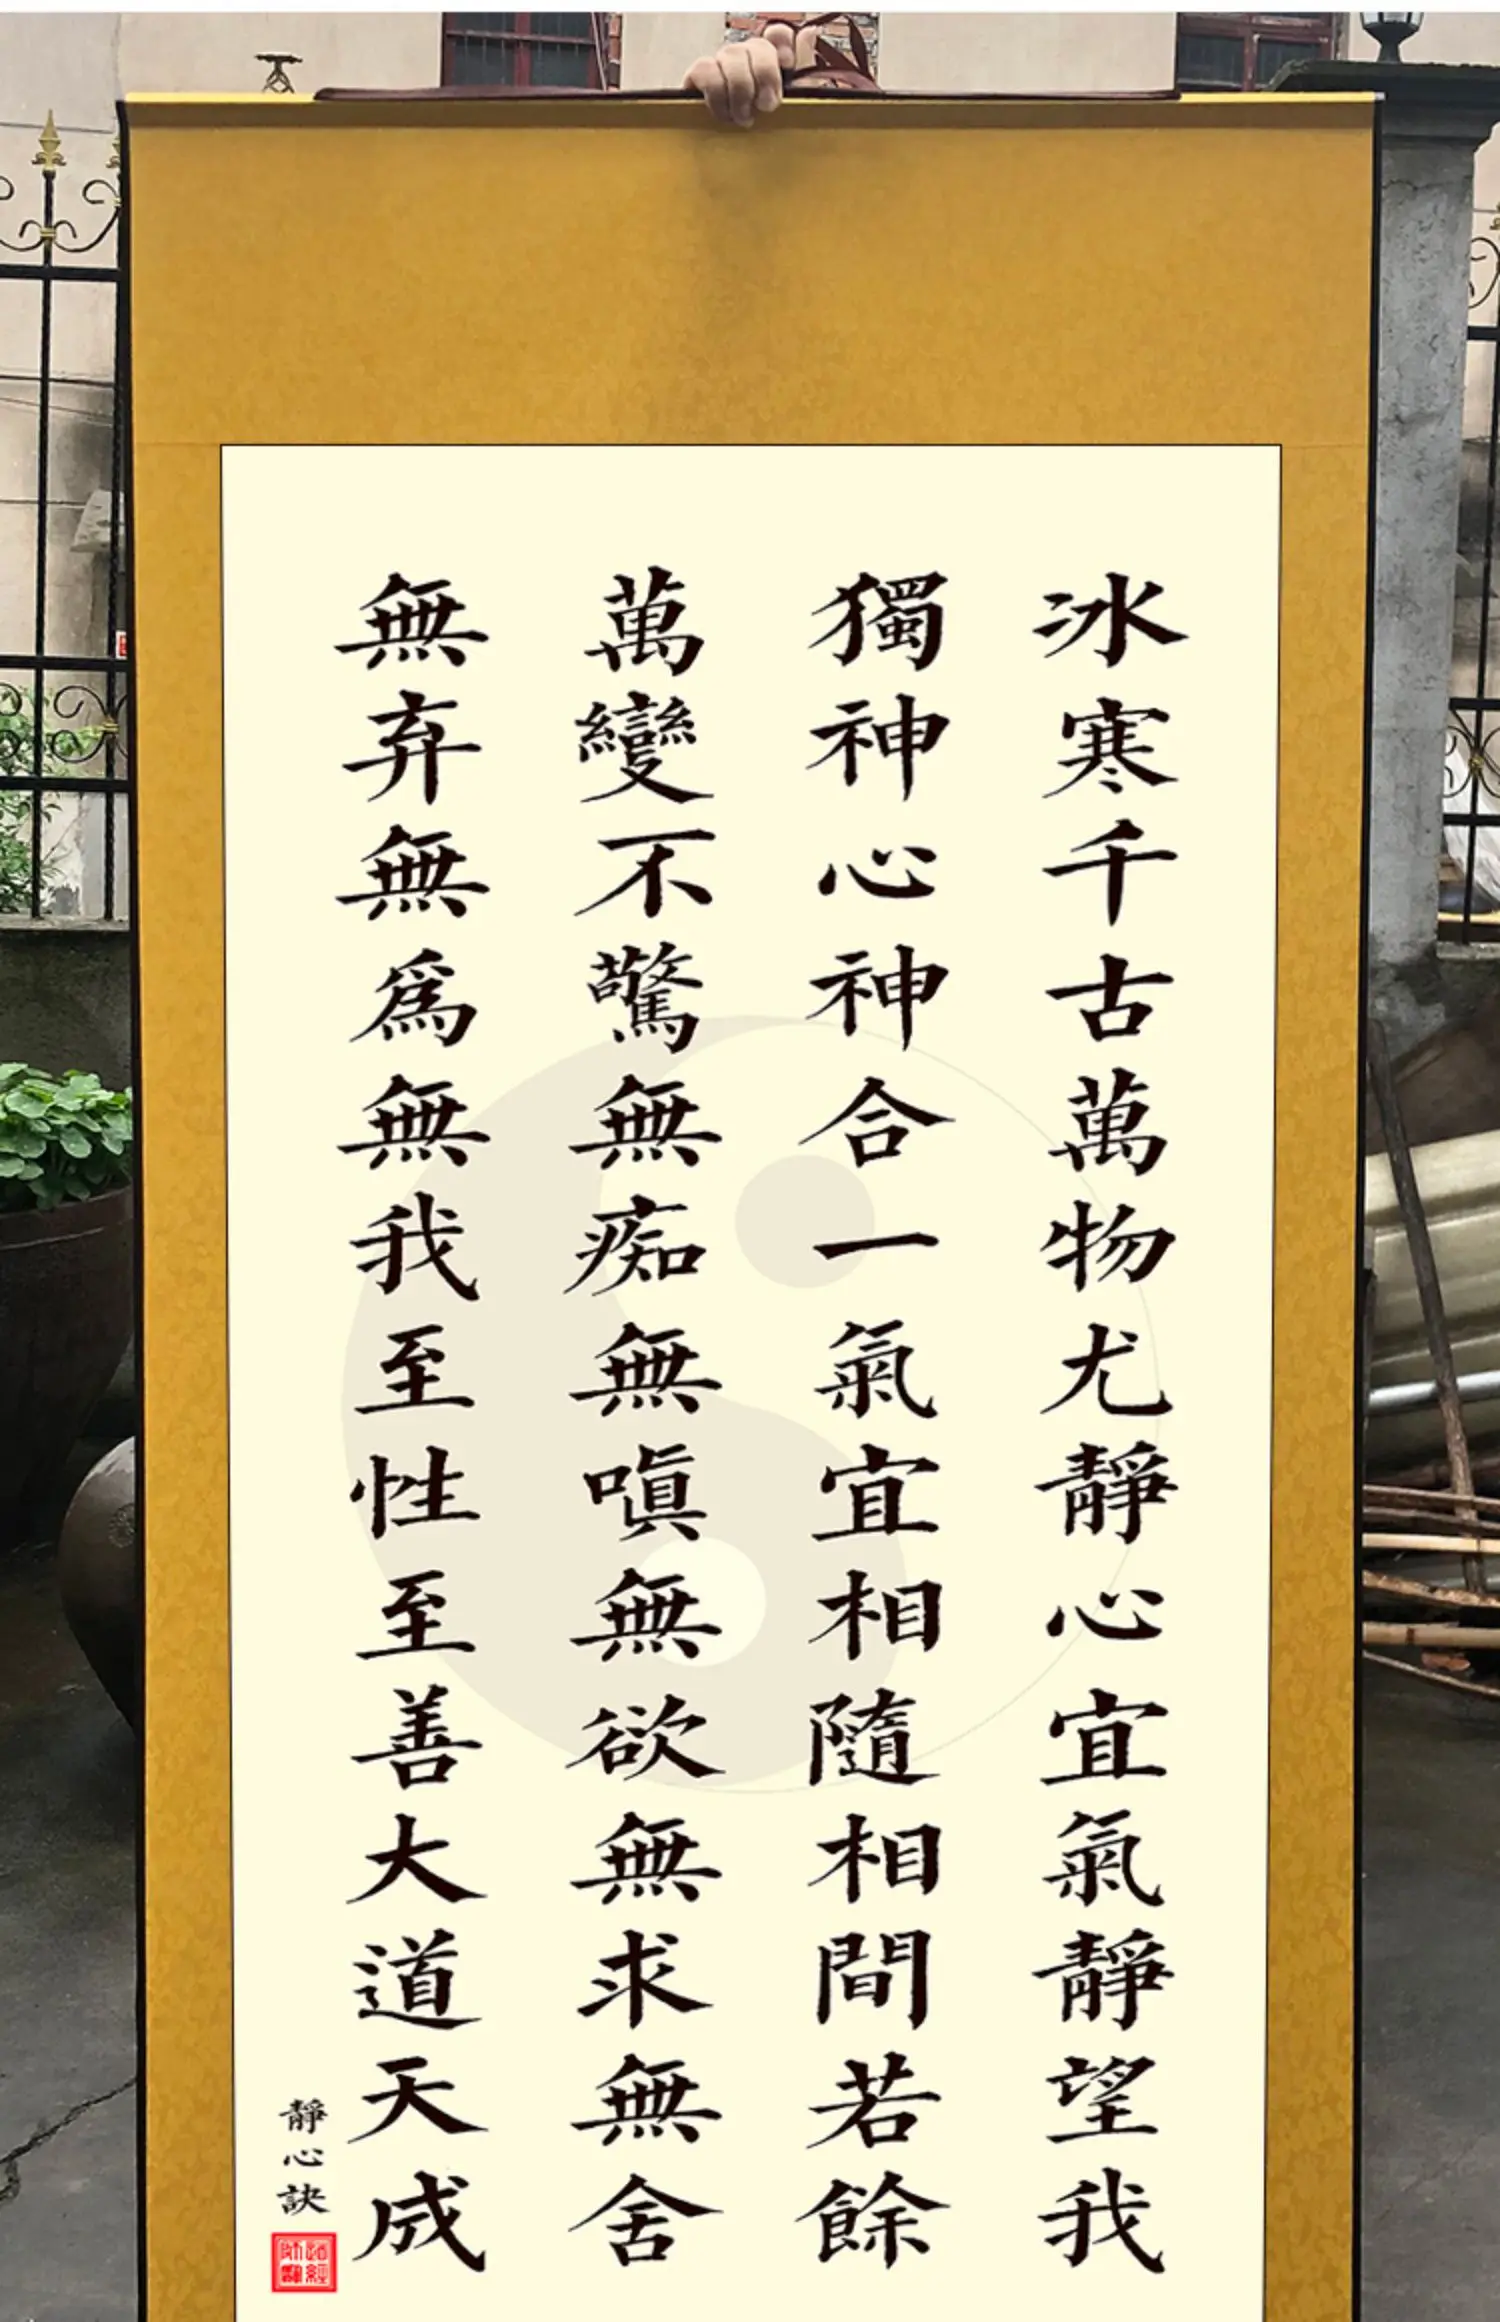 冰寒千古萬物尤靜心宜氣靜望我
獨神心神合一氣宜相隨相間若餘
萬變不驚無痴無嗔無欲無求無舍
無弃無為無我至性至善大道天成
靜心訣